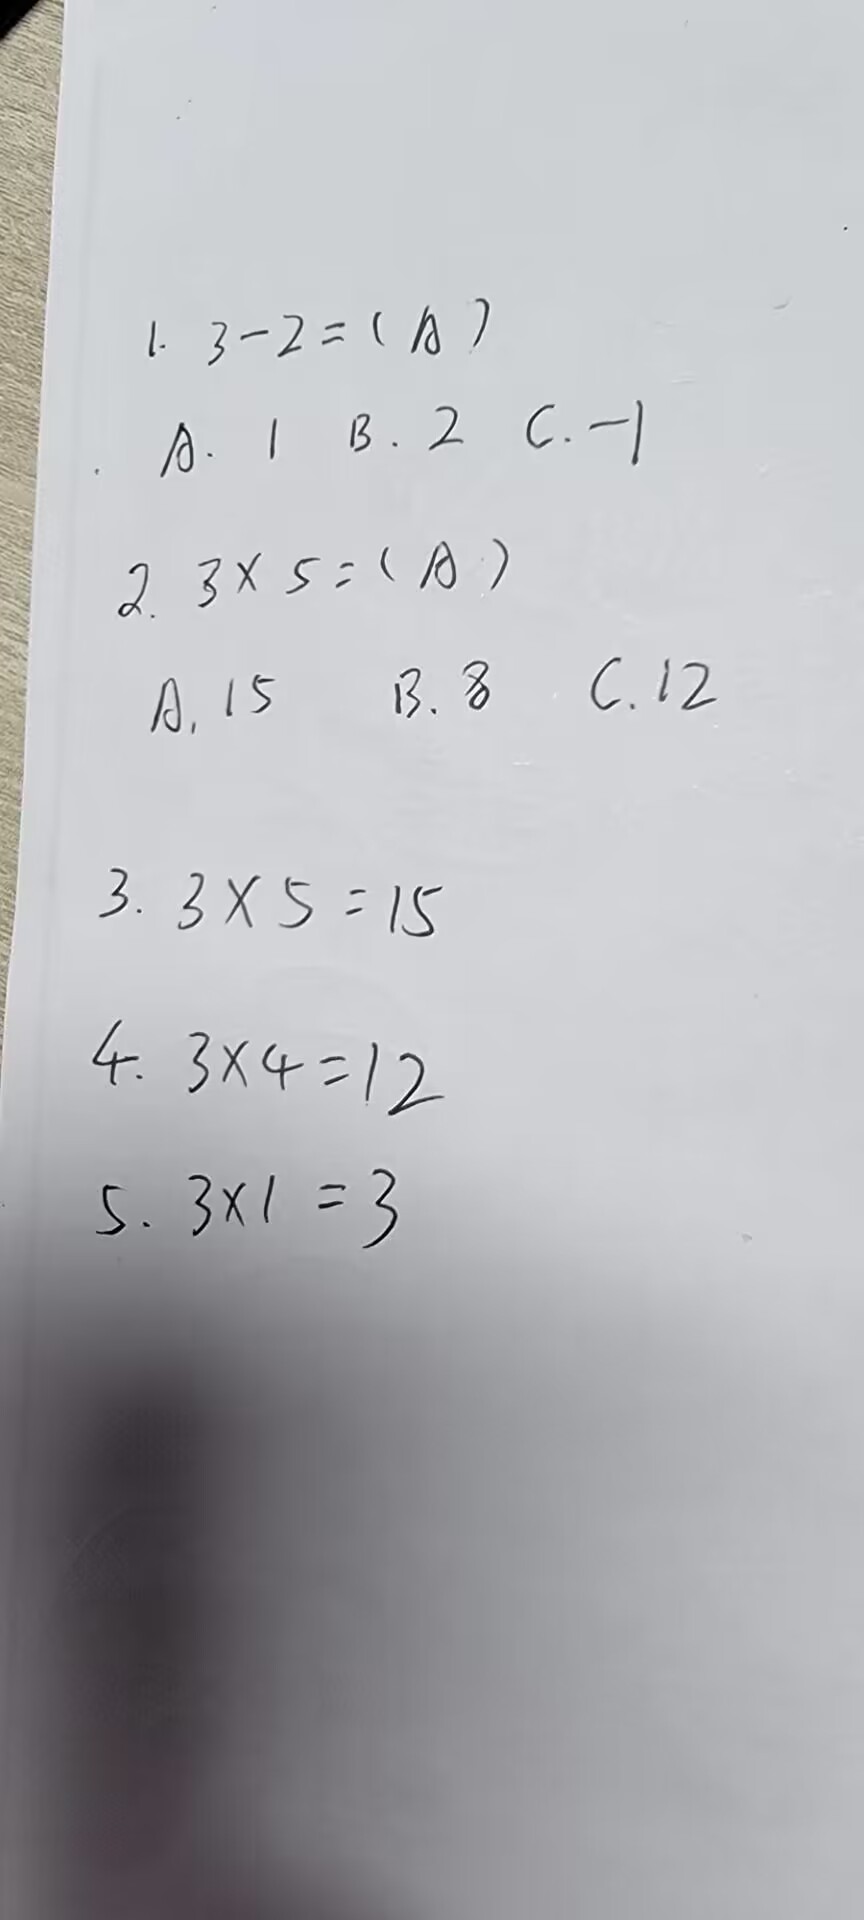 1. 3-2=(A)
A. 1 B. 2 C. -1
2. 3×5=(A)
A. 15 B. 8 C. 12
3. 3×5=15
4. 3×4=12
5. 3×1=3